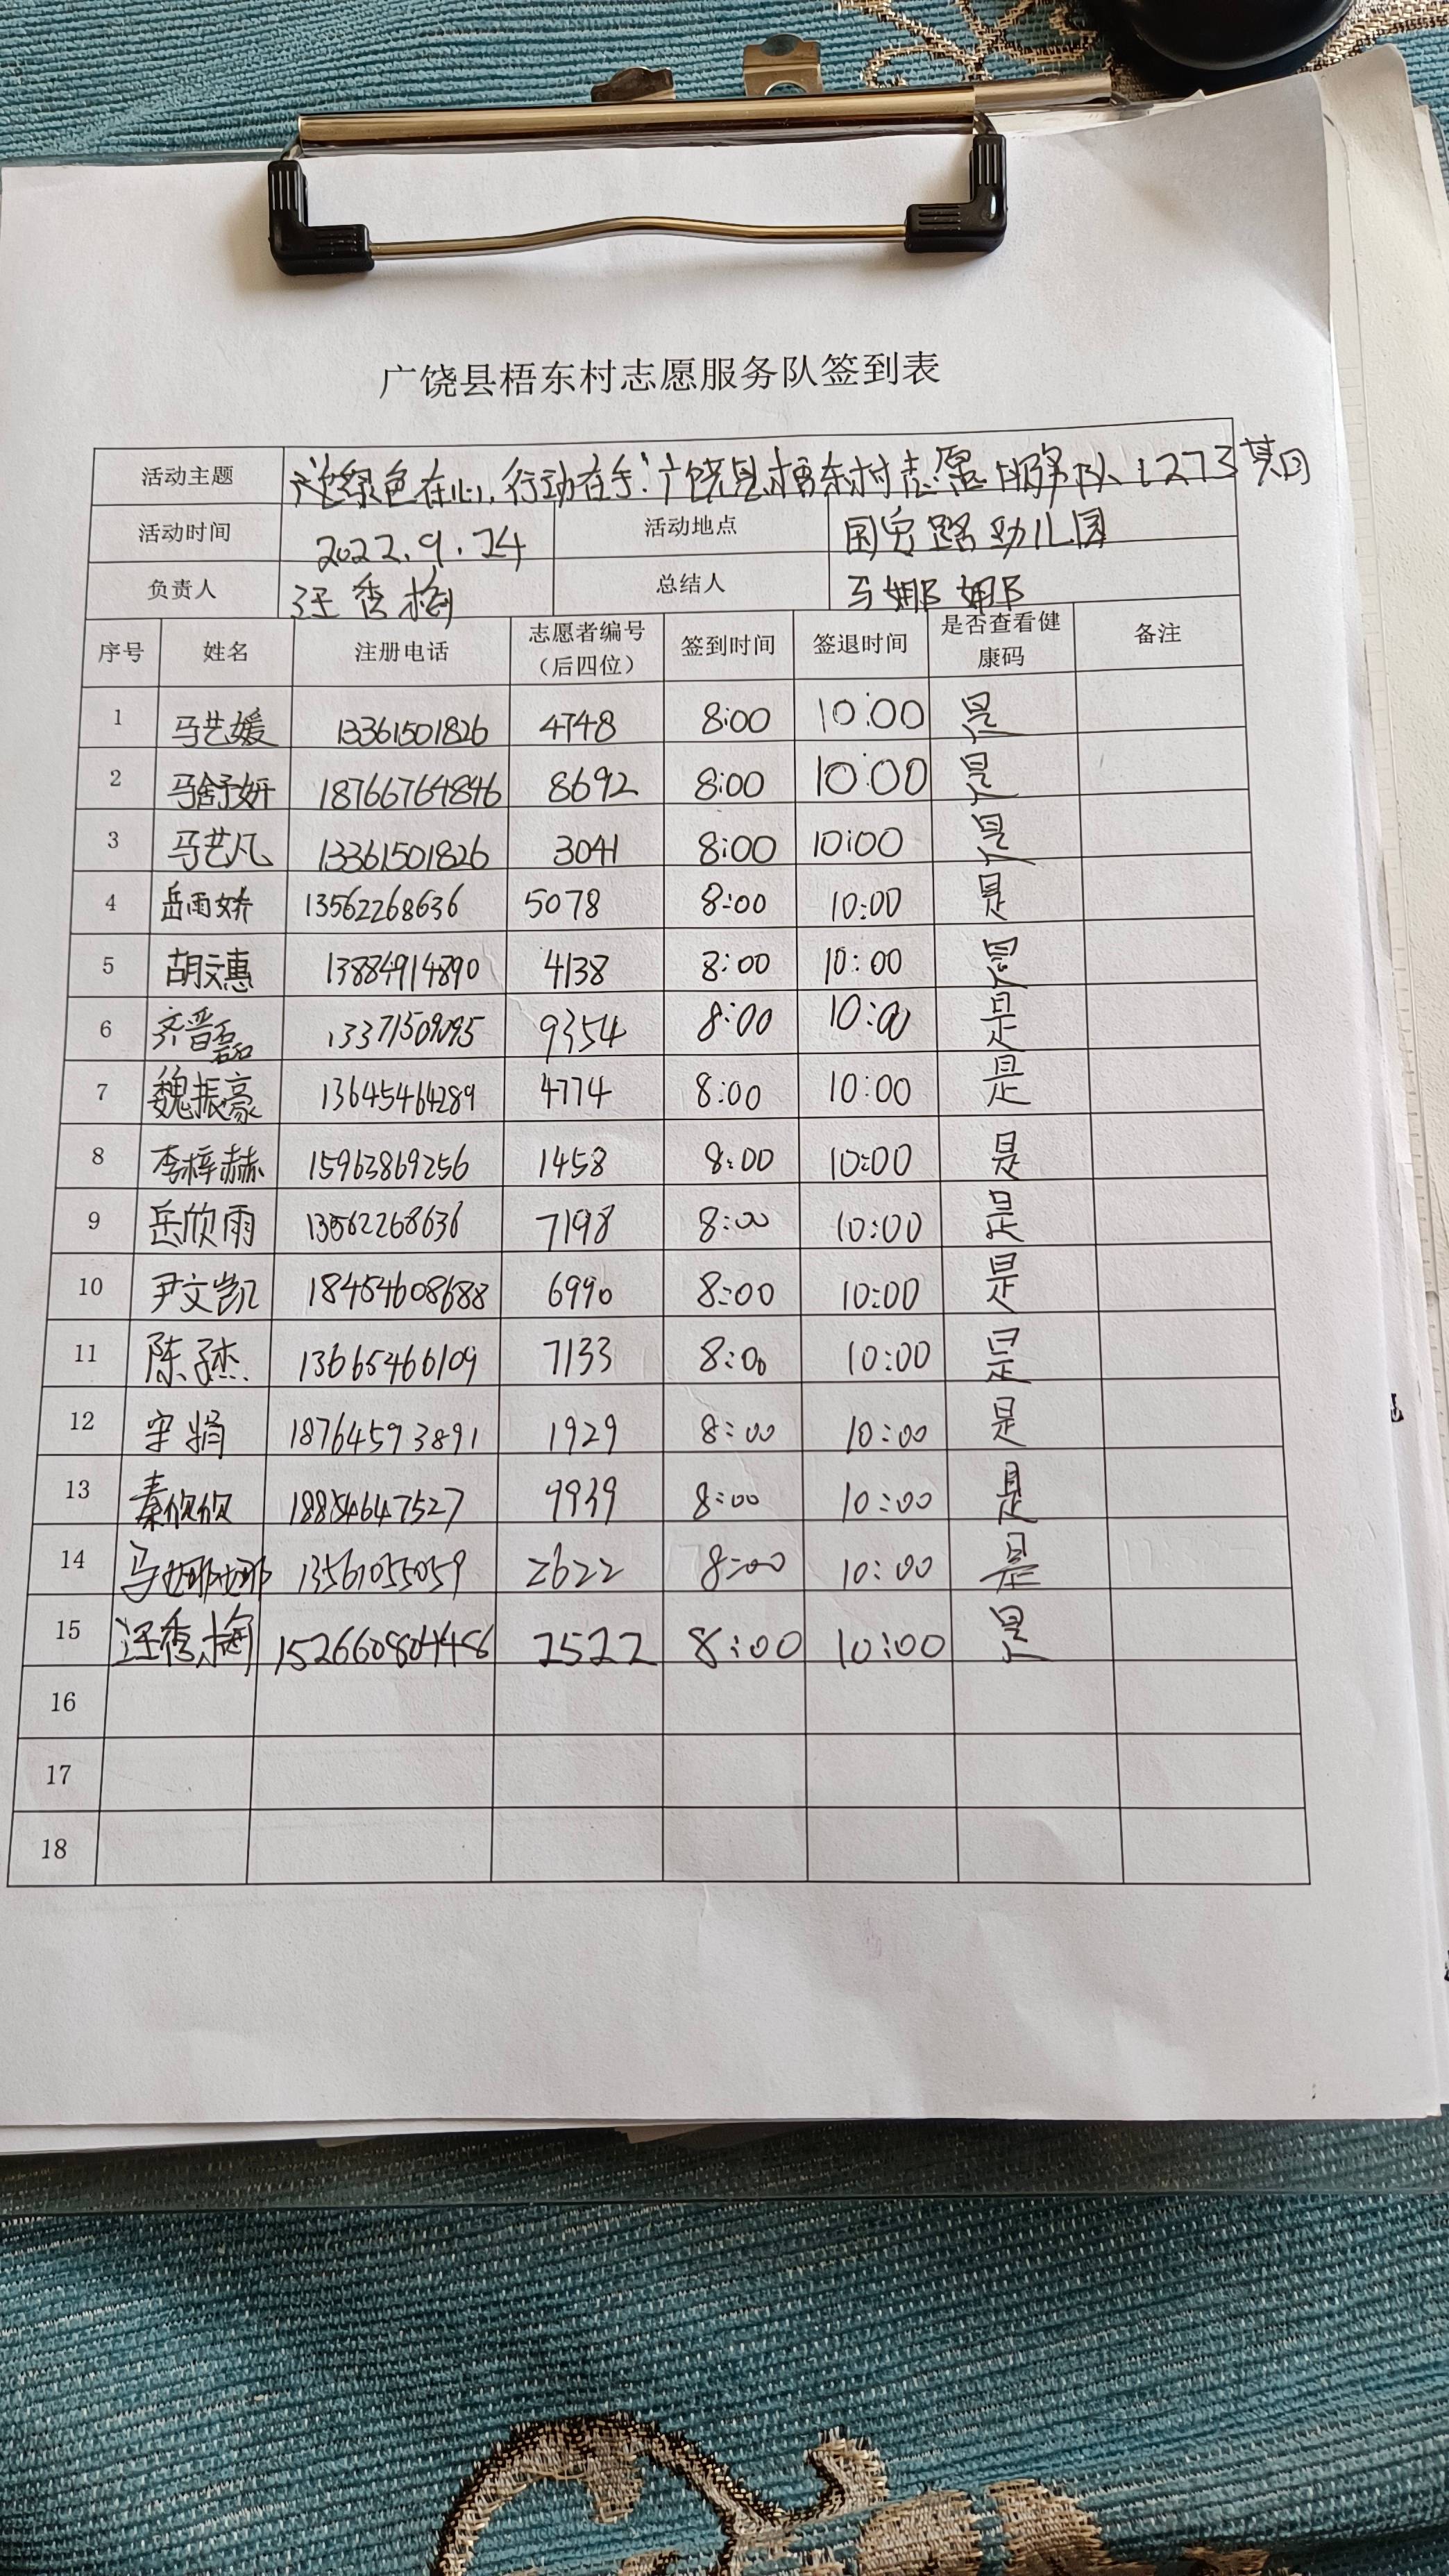 广饶县梧东村志愿服务队签到表
活动主题 绿色在心,行动在手!广饶县梧东村志愿服务队1273期
活动时间 2022.9.24 活动地点 国安路幼儿园
负责人 汪香梅 总结人 马娜娜
序号 姓名 注册电话 志愿者编号(后四位) 签到时间 签退时间 是否查看健康码 备注
1 马艺媛 13361501826 4748 8:00 10:00 是
2 马舒妍 18766764846 8692 8:00 10:00 是
3 马艺凡 13361501826 3041 8:00 10:00 是
4 岳雨娇 13562268636 5078 8:00 10:00 是
5 胡文惠 13884914890 4138 8:00 10:00 是
6 齐晋磊 13371509095 9354 8:00 10:00 是
7 魏振豪 13645464289 4774 8:00 10:00 是
8 李梓赫 15963869256 1458 8:00 10:00 是
9 岳欣雨 13562268636 7198 8:00 10:00 是
10 尹文凯 18454608688 6990 8:00 10:00 是
11 陈子杰 13665466109 7133 8:00 10:00 是
12 宋娟 18764593891 1929 8:00 10:00 是
13 秦欣欣 18854647527 9939 8:00 10:00 是
14 马娜娜 13561055059 2622 8:00 10:00 是
15 汪香梅 15266080448 2522 8:00 10:00 是
16
17
18